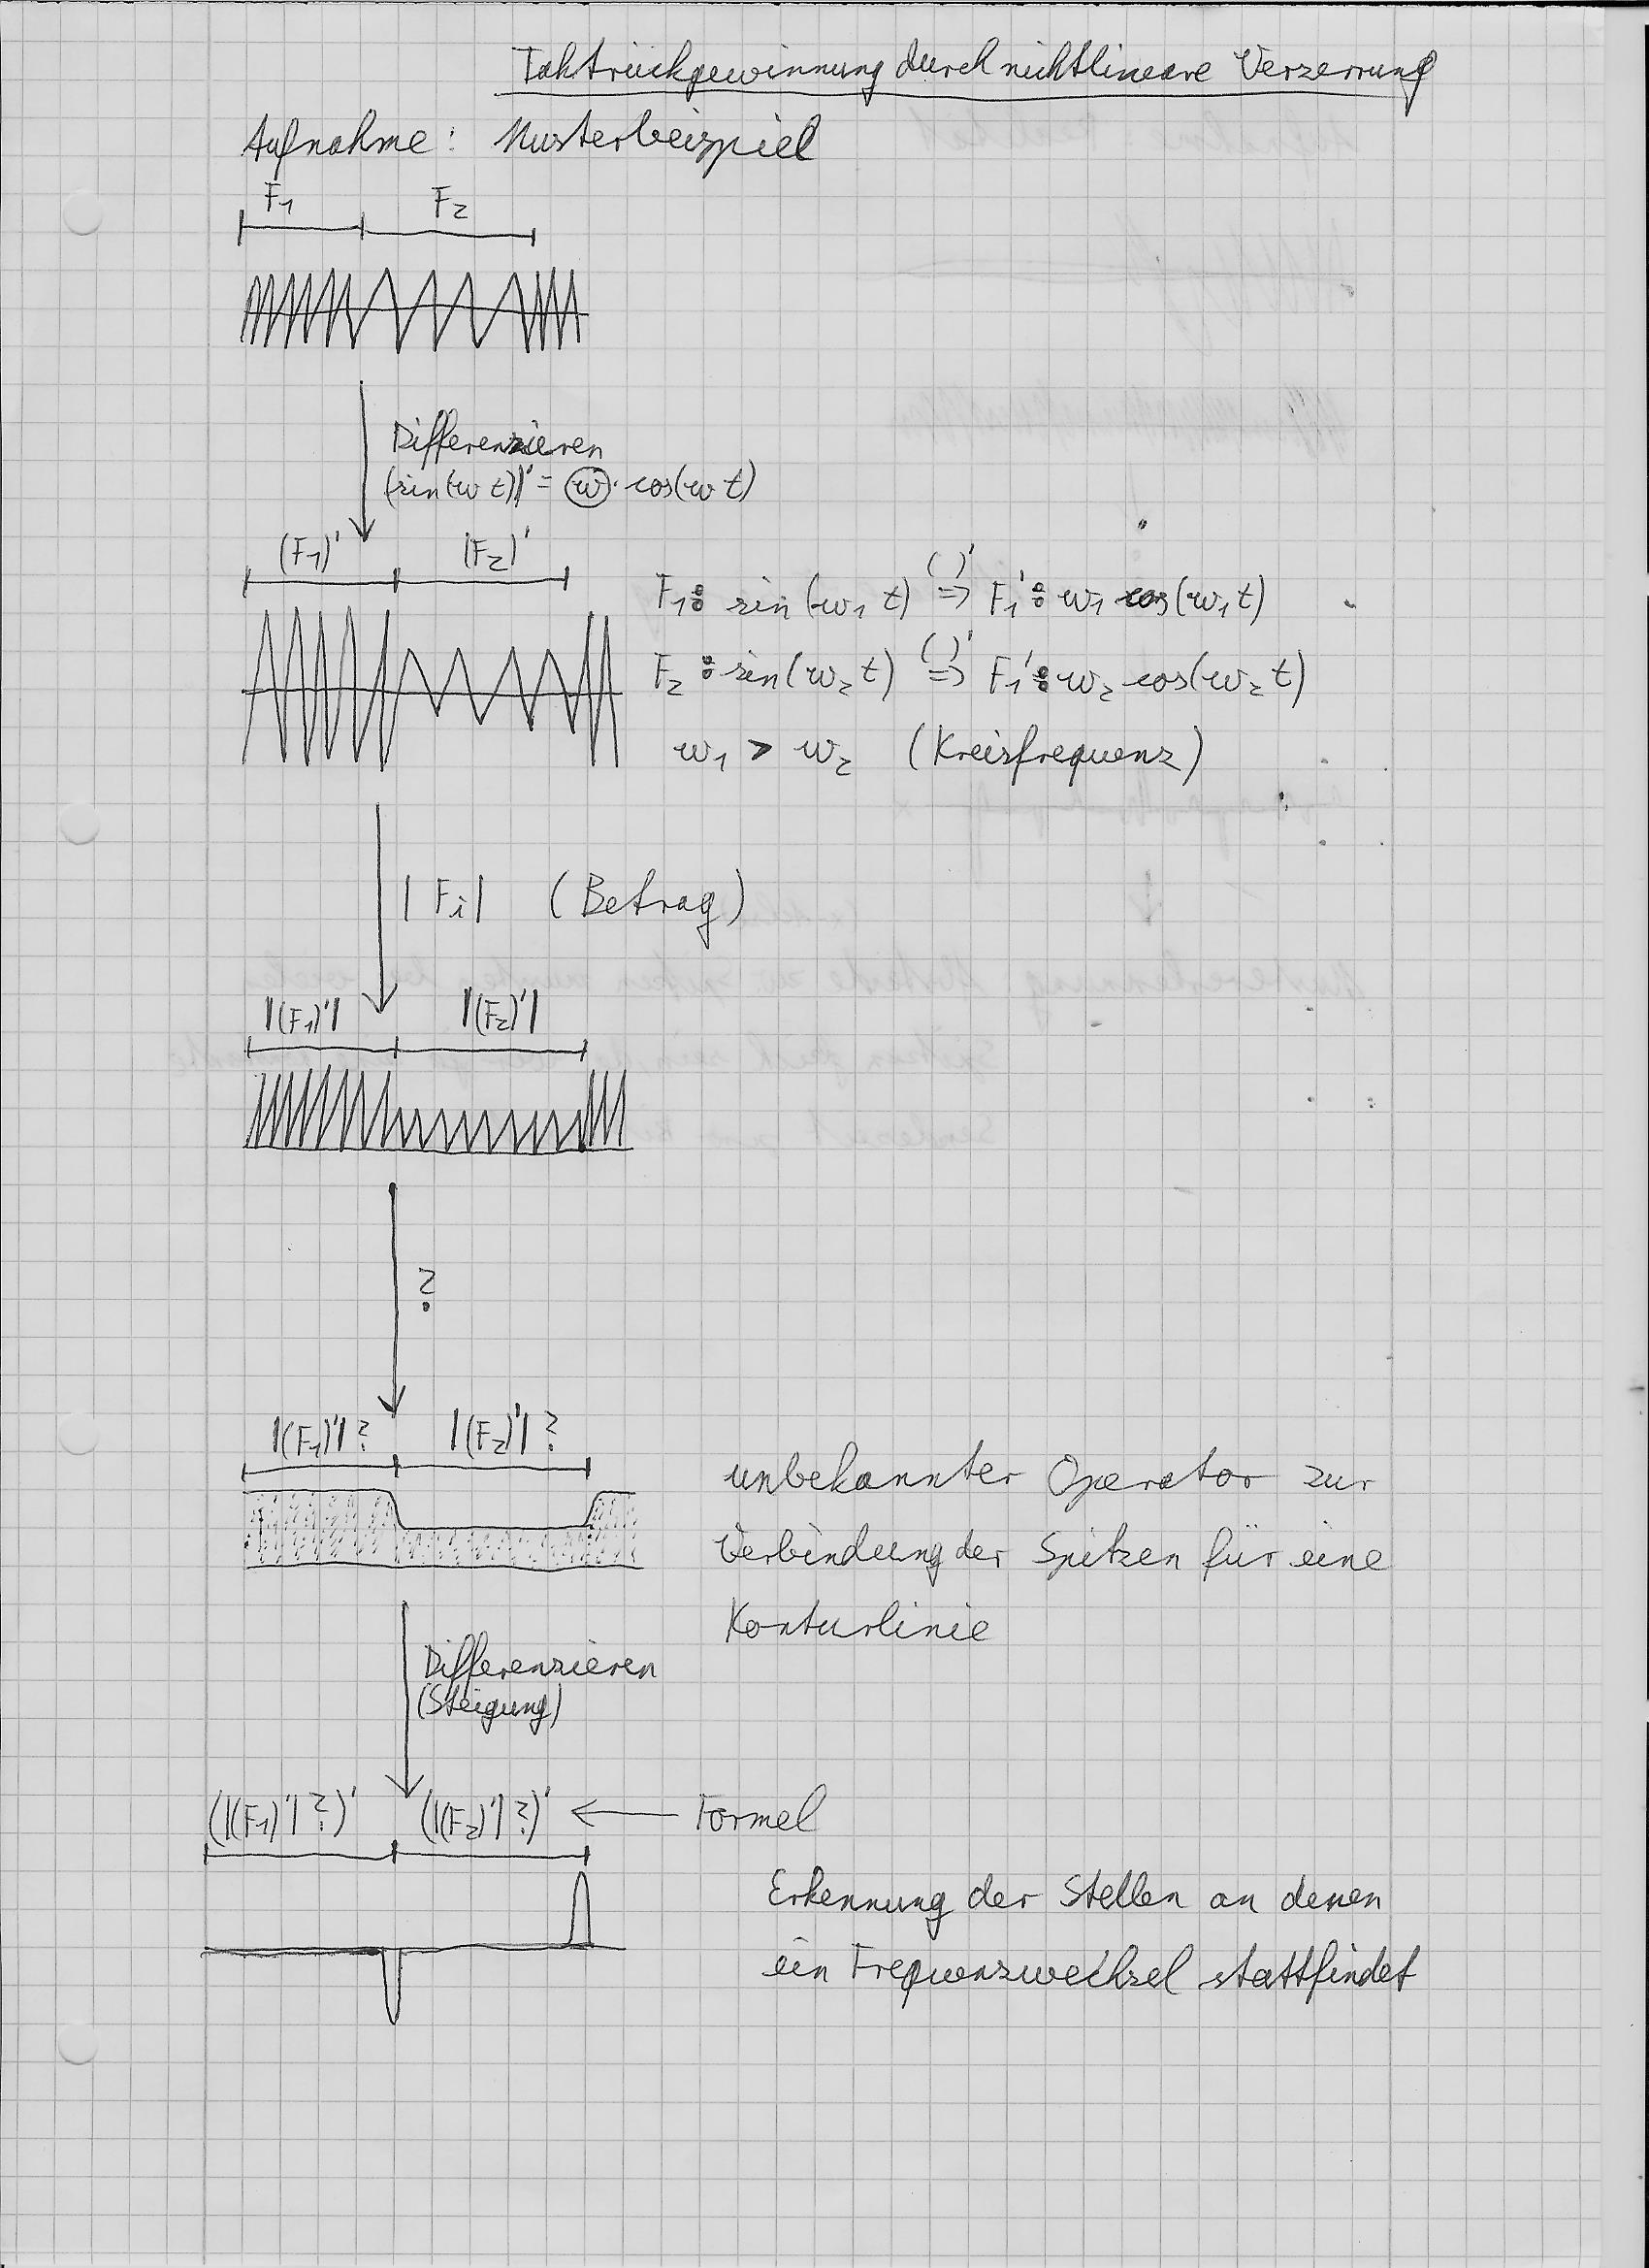 Taktrückgewinnung durch nichtlineare Verzerrung
Aufnahme: Musterbeispiel
F₁ F₂
Differenzieren
(sin(w t))' = w · cos(w t)
(F₁)' (F₂)'
F₁: sin(w₁ t) ( )' ⇒ F₁': w₁ cos(w₁ t)
F₂: sin(w₂ t) ( )' ⇒ F₁': w₂ cos(w₂ t)
w₁ > w₂ (Kreisfrequenz)
|Fᵢ| (Betrag)
|(F₁)'| |(F₂)'|
?
|(F₁)'| ? |(F₂)'| ?
unbekannter Operator zur
Verbindung der Spitzen für eine
Konturlinie
Differenzieren
(Steigung)
(|(F₁)'| ?)' (|(F₂)'| ?)' ← Formel
Erkennung der Stellen an denen
ein Frequenzwechsel stattfindet